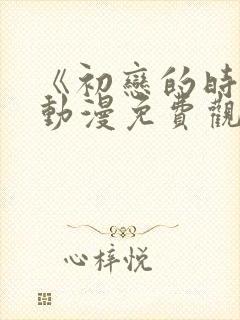 《初戀的時
動漫免費觀
心梓悦